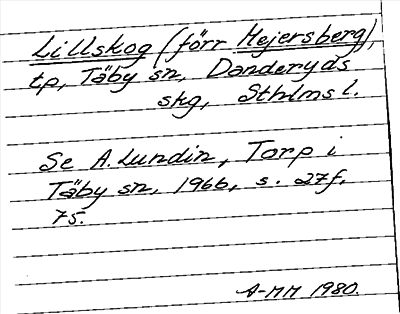 Lillskog (förr Hejersberg),
tp, Täby sn, Danderyds
skg, Sthlms l.
Se A. Lundin, Torp i
Täby sn, 1966, s. 27f,
75.
A-MM 1980.